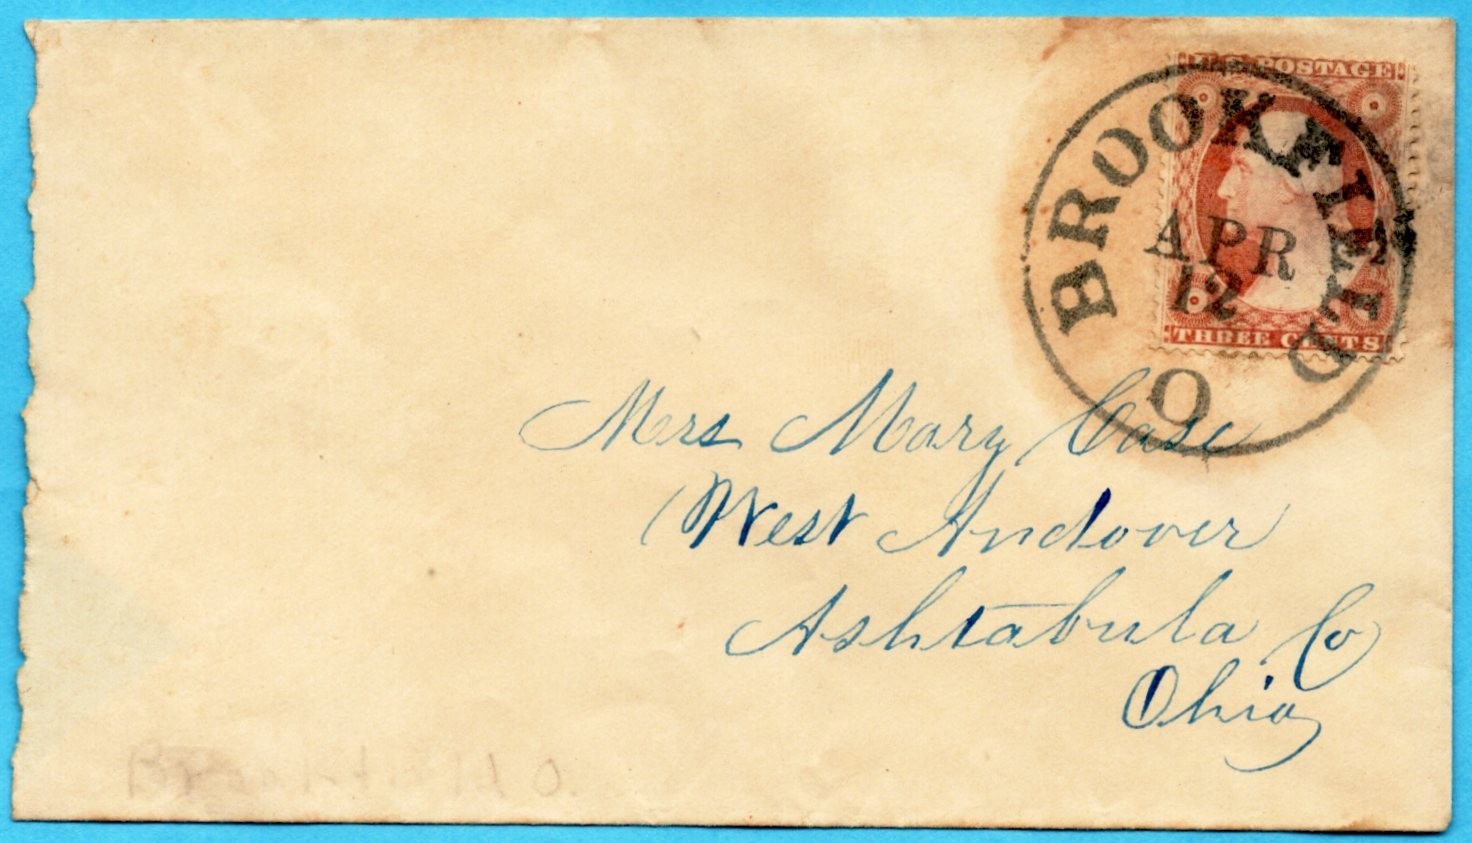 U.S. POSTAGE
BROOKFIELD O
APR
12
THREE CENTS
Mrs Mary Case
West Andover
Ashtabula Co
Ohio